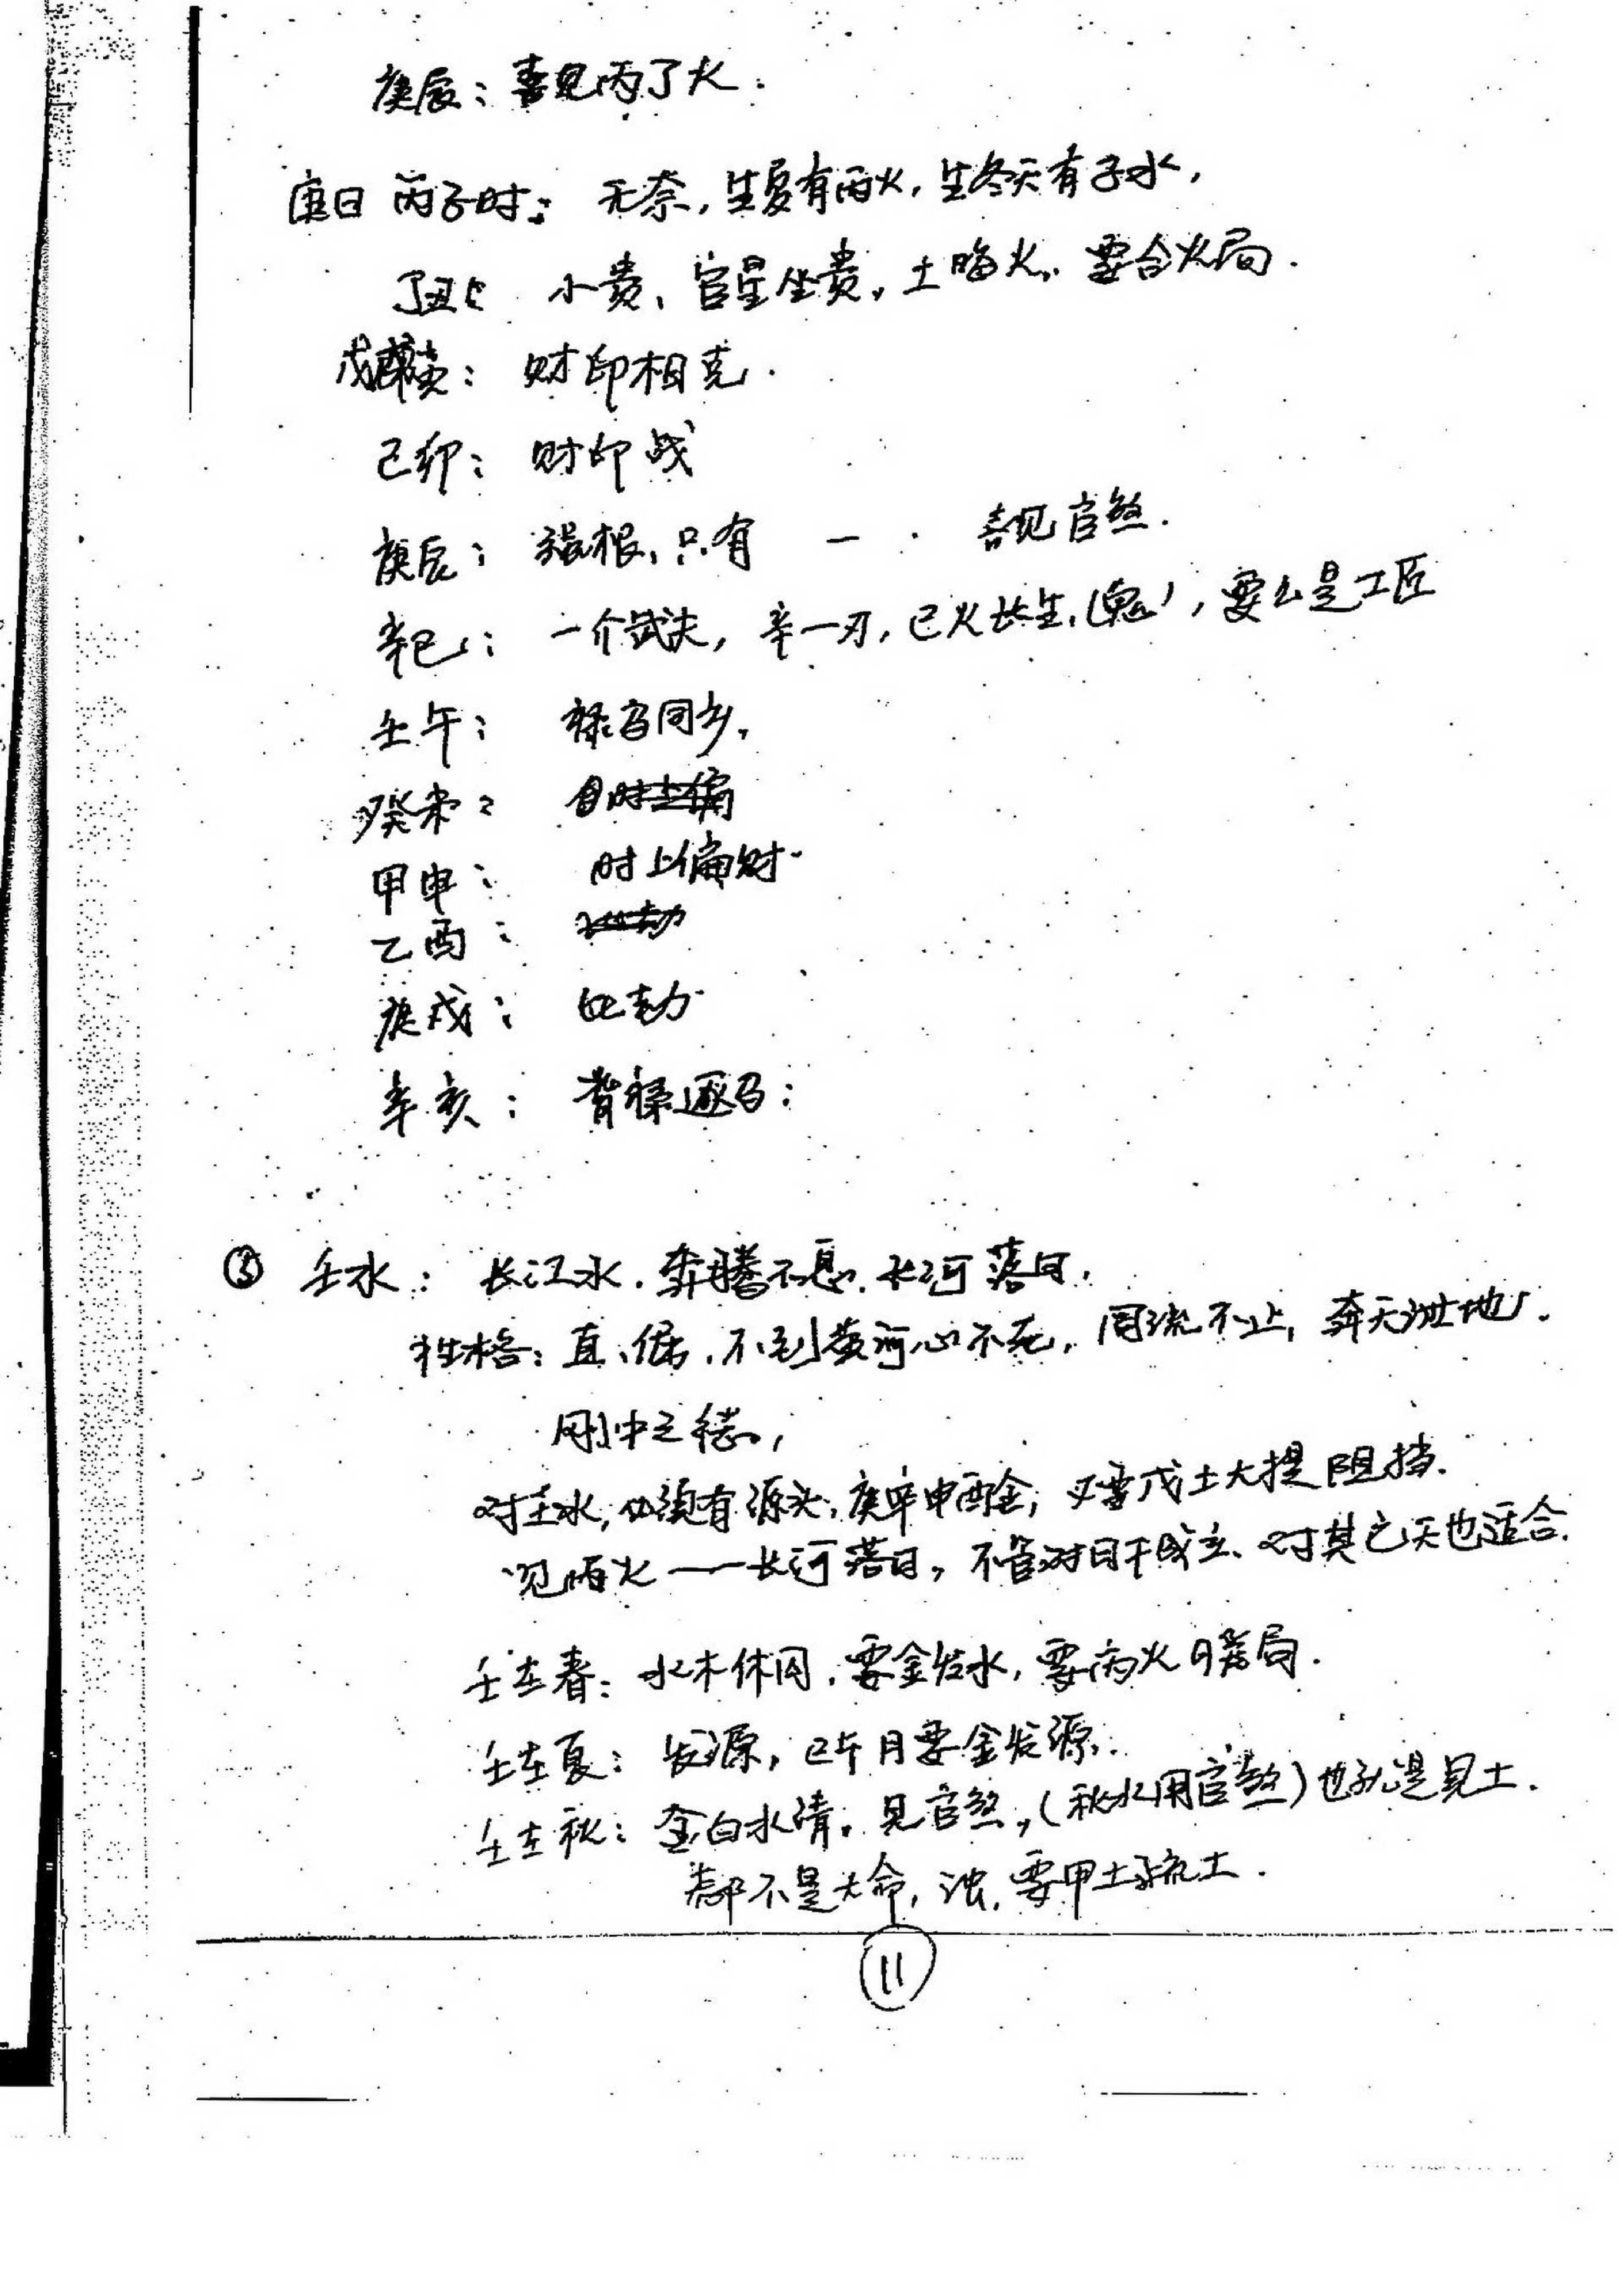 庚辰：喜见丙丁火．
庚日 丙子时：无奈，生夏有丙火，生冬天有子水，
丁丑： 小贵、官星坐贵，土晦火，要合火局．
戊寅：财印相克．
己卯：财印战
庚辰：强根，只有 一 . 喜见官煞．
辛巳：一介武夫，辛一刃，巳火长生，（鬼），要么是工匠
壬午：禄马同乡，
癸未：
甲申：时上偏财
乙酉：
庚戌：比劫
辛亥：背禄逐马：
⑤ 壬水：长江水．奔腾不息．长河落日，
性格：直、倔．不到黄河心不死，周流不止，奔天泄地．
刚中之德，
对壬水，必须有源头，庚辛申酉金，又要戊土大提阻挡．
见丙火——长河落日，不管对日干成立、对其它天也适合．
壬生春：水木休囚．要金发水，要丙火日落局．
壬生夏：发源，巳午月要金发源．
壬生秋：金白水清．见官煞，（秋水用官煞）也就是见土．
都不是大命，浊．要甲土疏土．
11